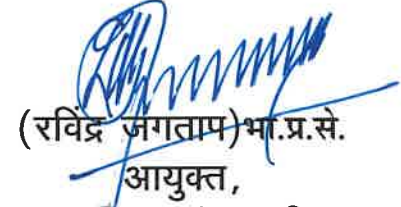 (रविंद्र जगताप)भा.प्र.से.
आयुक्त,